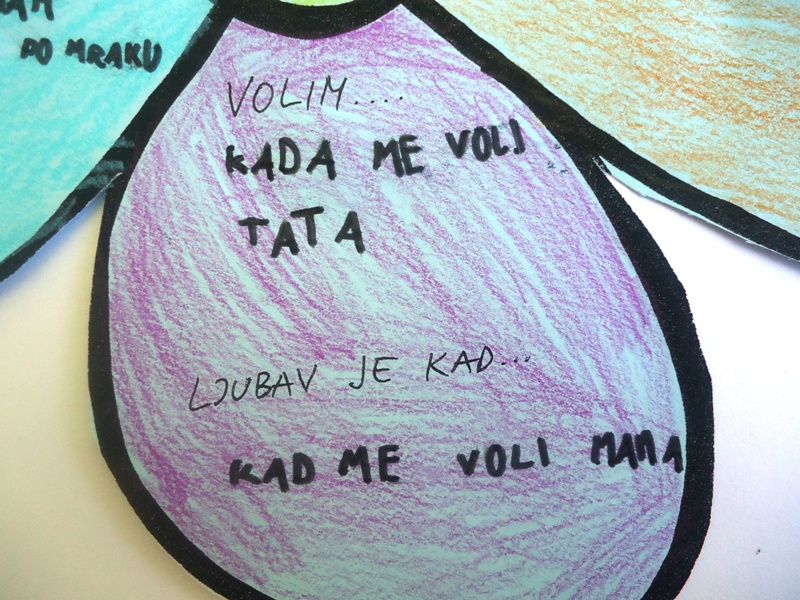 PO MRAKU
VOLIM....
KADA ME VOLI
TATA
LJUBAV JE KAD...
KAD ME VOLI MAMA